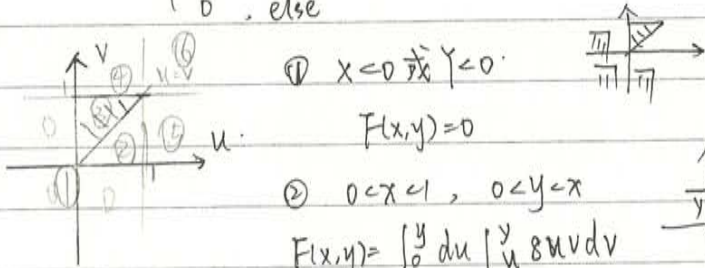 0 , else
V
⑥
④
u=v
1
③
0
⑤
②
u
①
0
1
① X<0 或 Y<0
F(x,y)=0
② 0<x<1 , 0<y<x
F(x,y)= ∫₀^y du ∫ᵤ^y 8uvdv
y